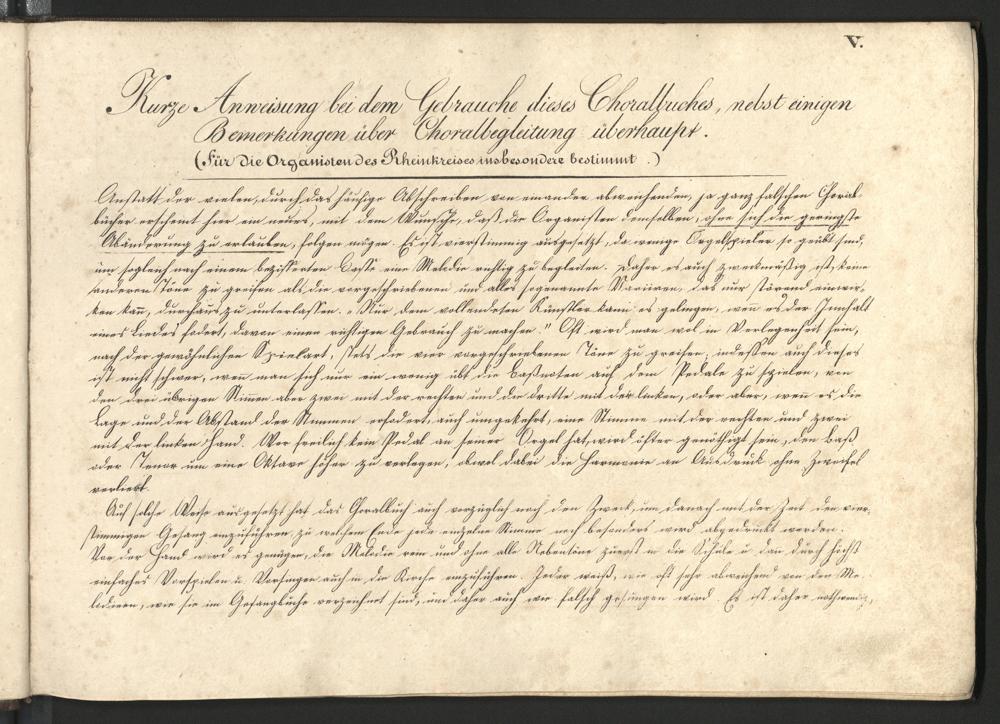 V.
Kurze Anweisung bei dem Gebrauche dieses Choralbuches, nebst einigen
Bemerkungen über Choralbegleitung überhaupt.
(Für die Organisten des Rheinkreises insbesondere bestimmt.)
Anstatt der vielen, durch das häufige Abschreiben von einander abweichenden, ja ganz falschen Choral-
bücher erscheint hier ein neues, mit dem Wunsche, daß die Organisten demselben, ohne sich die geringste
Abänderung zu erlauben, folgen mögen. Es ist vierstimmig ausgesetzt, da wenige Orgelspieler so geübt sind,
um sogleich nach einem bezifferten Basse eine Melodie richtig zu begleiten. Daher es auch zweckmäßig ist, keine
anderen Töne zu greifen als die vorgeschriebenen und alles sogenannte Variiren, das nur störend einwir-
ken kan, durchaus zu unterlassen. „Nur dem vollendeten Künstler kann es gelingen, weñ es der Innhalt
eines Liedes fodert, davon einen richtigen Gebrauch zu machen." Oft wird man wol in Verlegenheit sein,
nach der gewöhnlichen Spielart, stets die vier vorgeschriebenen Töne zu greifen; indessen auch dieses
ist nicht schwer, weñ man sich nur ein wenig übt die Baßnoten auf dem Pedale zu spielen, von
den drei übrigen Stimen aber zwei mit der rechten und die dritte mit der linken, oder aber, weñ es die
Lage und der Abstand der Stimmen erfodert, auch umgekehrt, eine Stimme mit der rechten und zwei
mit der linken Hand. Wer freilich kein Pedal an seiner Orgel hat, wird öfter genöthigt sein, den Baß
oder Tenor um eine Oktave höher zu verlegen, obwol dabei die Harmonie an Ausdruck ohne Zweifel
verliert.
Auf solche Weise ausgesetzt hat das Choralbuch auch vorzüglich noch den Zweck, um danach mit der Zeit den vier-
stimmigen Gesang einzuführen, zu welchem Ende jede einzelne Stimme noch besonders wird abgedruckt werden.
Vor der Hand wird es genügen, die Melodie rein und ohne alle Nebentöne zuerst in die Schule u. dañ durch höchst
einfaches Vorspielen u. Vorsingen auch in die Kirche einzuführen. Jeder weiß, wie oft sehr abweichend von den Me-
lodieen, wie sie im Gesangbuche verzeichnet sind, und daher auch wie falsch gesungen wird. Es ist daher nothwendig,